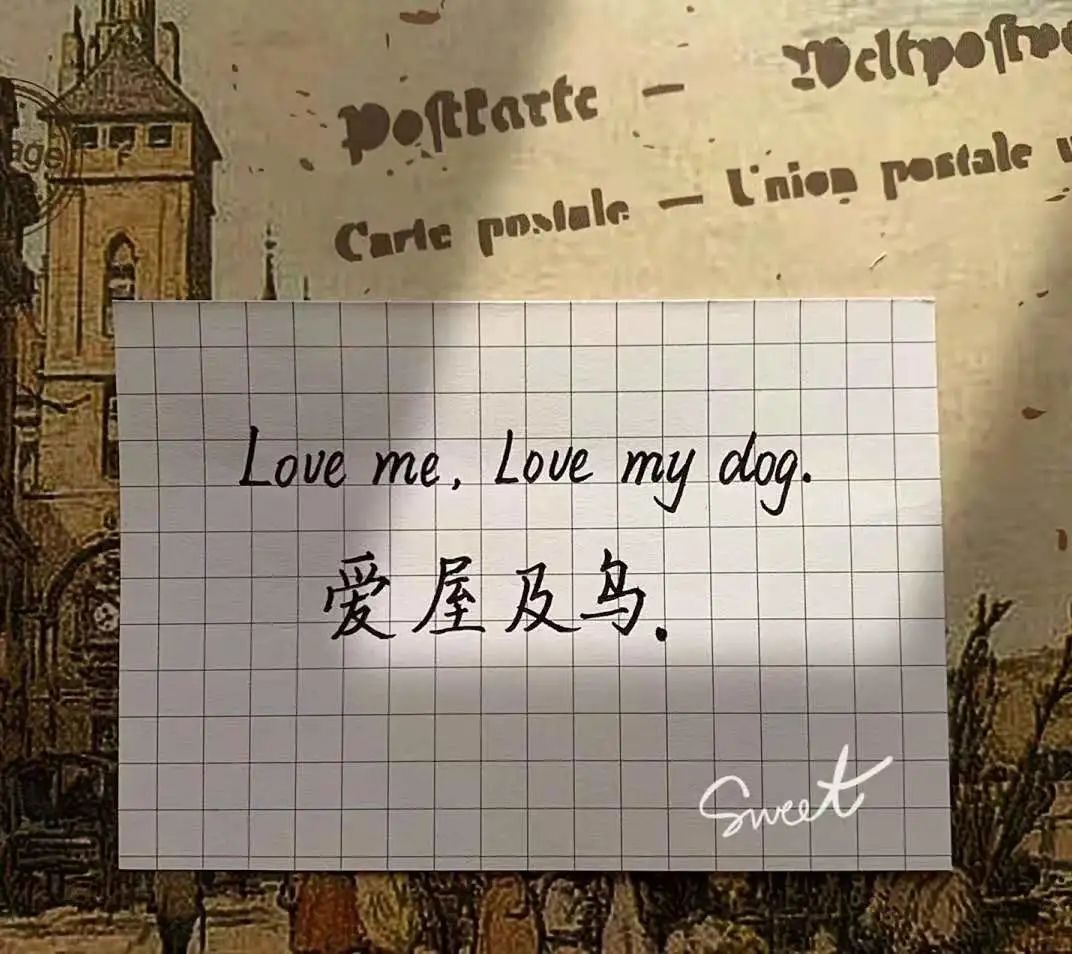 age
Postkarte —
Carte postale — Union postale
Love me, Love my dog.
爱屋及乌.
Sweet